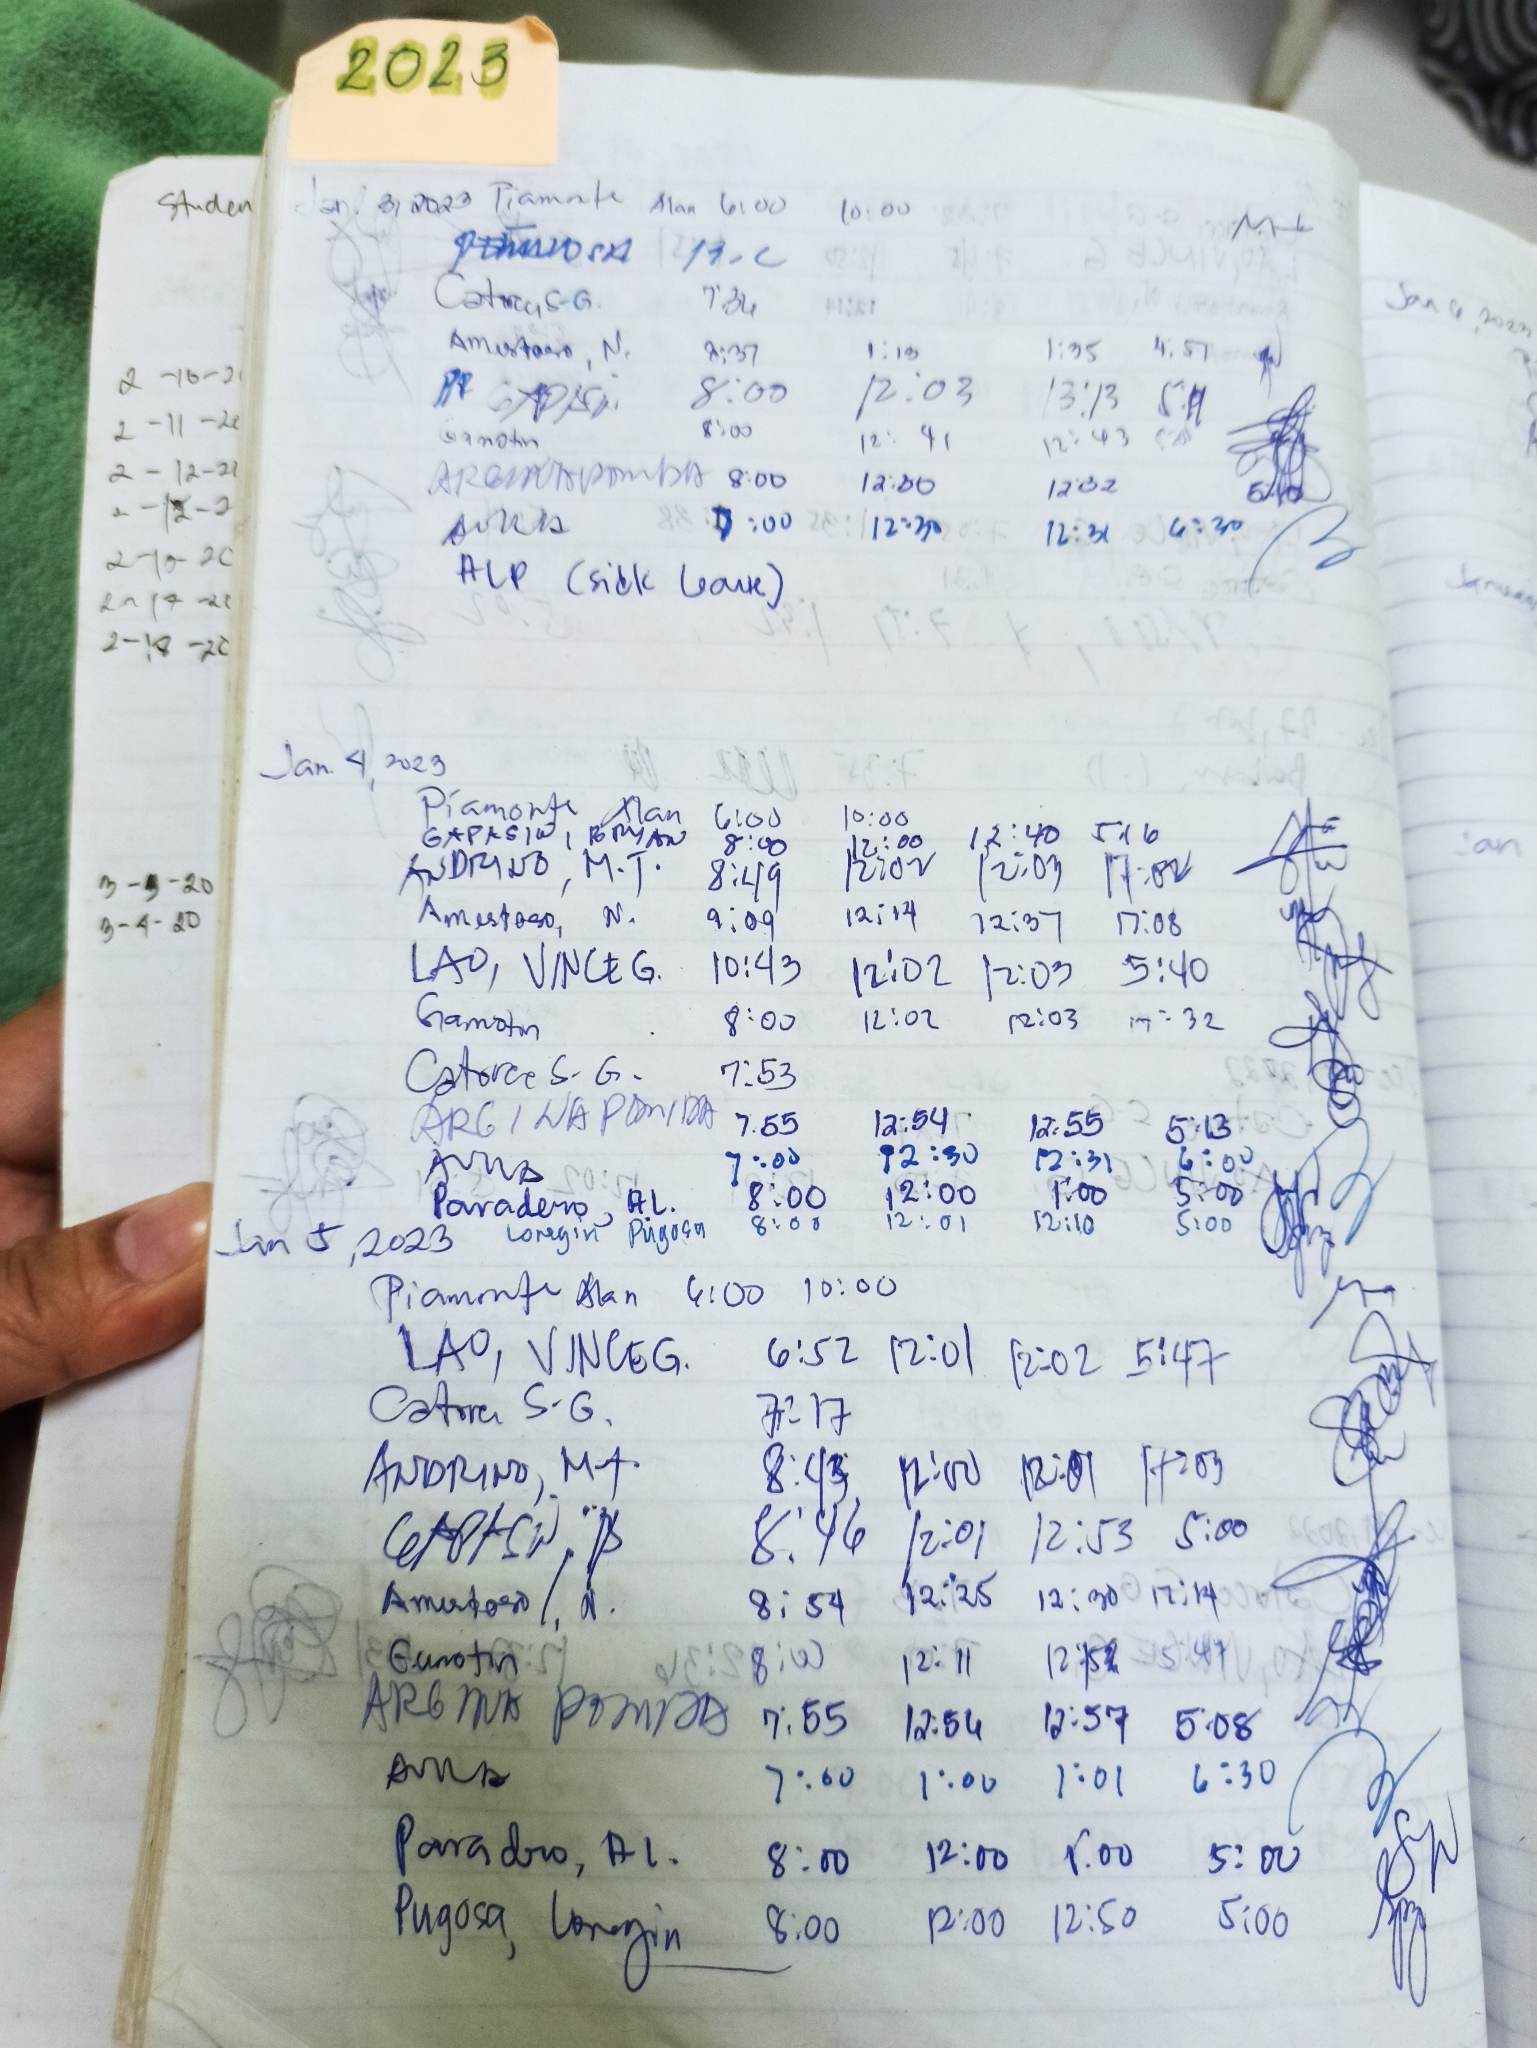 2023
Studen
Jan. 3, 2023 Piamonte Alan 6:00 10:00
Catorce S-G. 7:36
Amestoso, N. 1:13 1:35 4:57
8:00 12:03 13:13
Gamotin 8:00 12:41 12:43
ARGINA POMIDA 8:00 12:30 12:32 5:10
:00 12:30 12:31 6:30
ALP (sick leave)
2-10-2
2-11-20
2-12-20
2-18-20
3-4-20
Jan. 4, 2023
Piamonte Alan 6:00 10:00
GAPASIN, BRYAN 8:00 12:00 12:40 5:16
ANDRINO, M.T. 8:49 12:02 12:03 17:02
Amestoso, N. 9:09 12:14 12:37 17:08
LAO, VINCE G. 10:43 12:02 12:03 5:40
Gamotin 8:00 12:02 12:03 17:32
Catorce S-G. 7:53
ARGINA POMIDA 7:55 12:54 12:55 5:13
7:00 12:30 12:31 6:00
Paradero, AL. 8:00 12:00 1:00 5:00
Loregin Pugosa 8:00 12:01 12:10 5:00
Jan 5, 2023
Piamonte Alan 6:00 10:00
LAO, VINCE G. 6:52 12:01 12:02 5:47
Catorce S-G. 7:17
ANDRINO, M.T. 8:43 12:00 12:01 17:03
GAPASIN, B 8:46 12:01 12:53 5:00
Amestoso, N. 8:54 12:25 12:30 17:14
Gamotin 8:00 12:11 12:52 5:47
ARGINA POMIDA 7:55 12:56 12:57 5:08
7:00 1:00 1:01 6:30
Paradero, AL. 8:00 12:00 1:00 5:00
Pugosa, Loregin 8:00 12:00 12:50 5:00
Jan 6, 2023